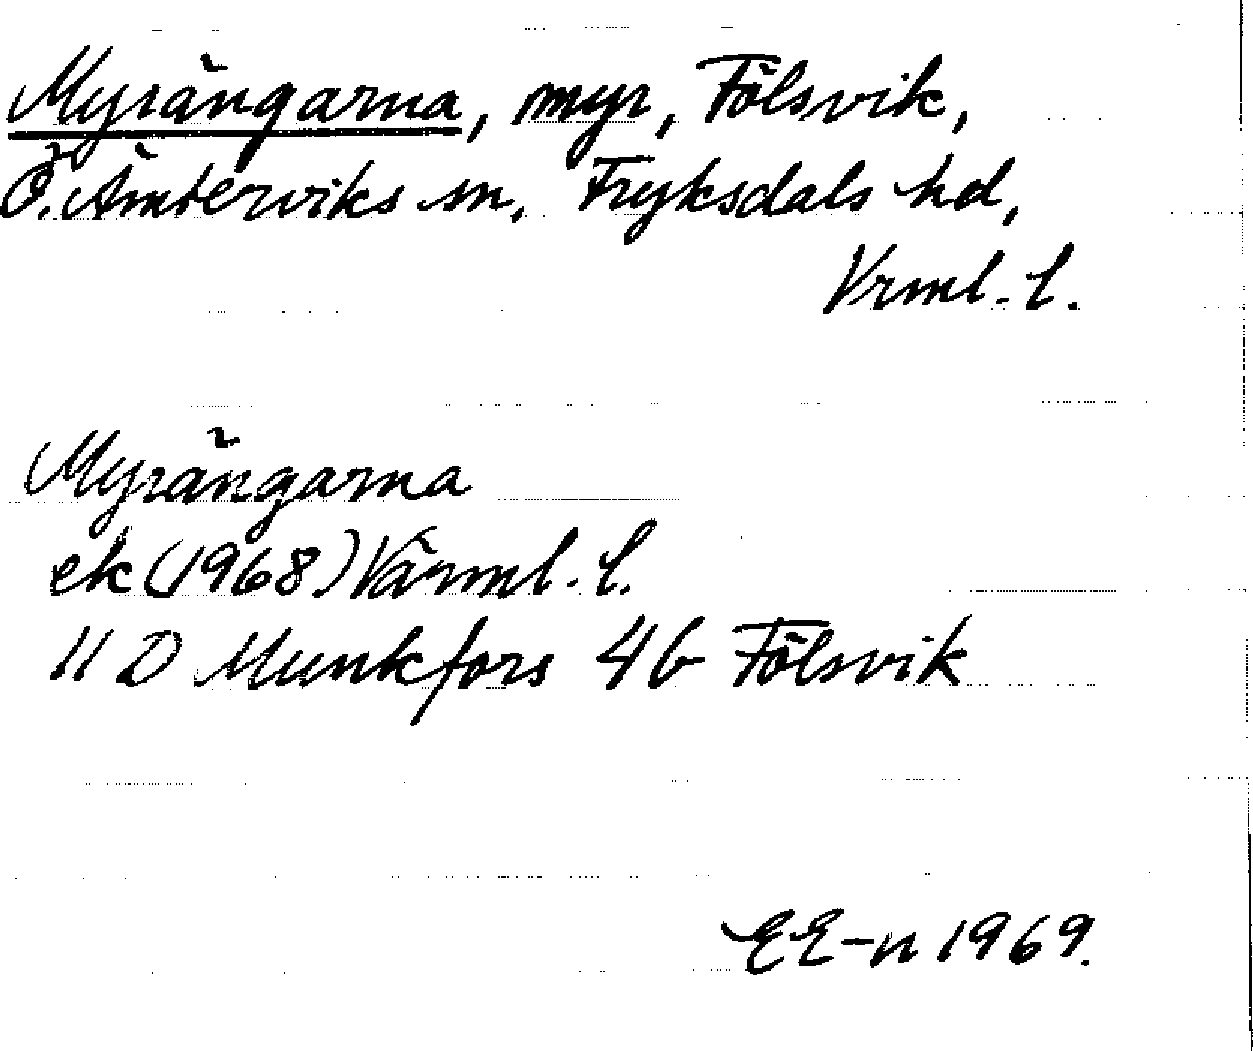 Myrängarna, myr, Fölsvik,
Ö. Ämterviks sn, Fryksdals hd,
Vrml. l.
Myrängarna
ek (1968) Värml. l.
11 D Munkfors 4b Fölsvik
EE-n 1969.